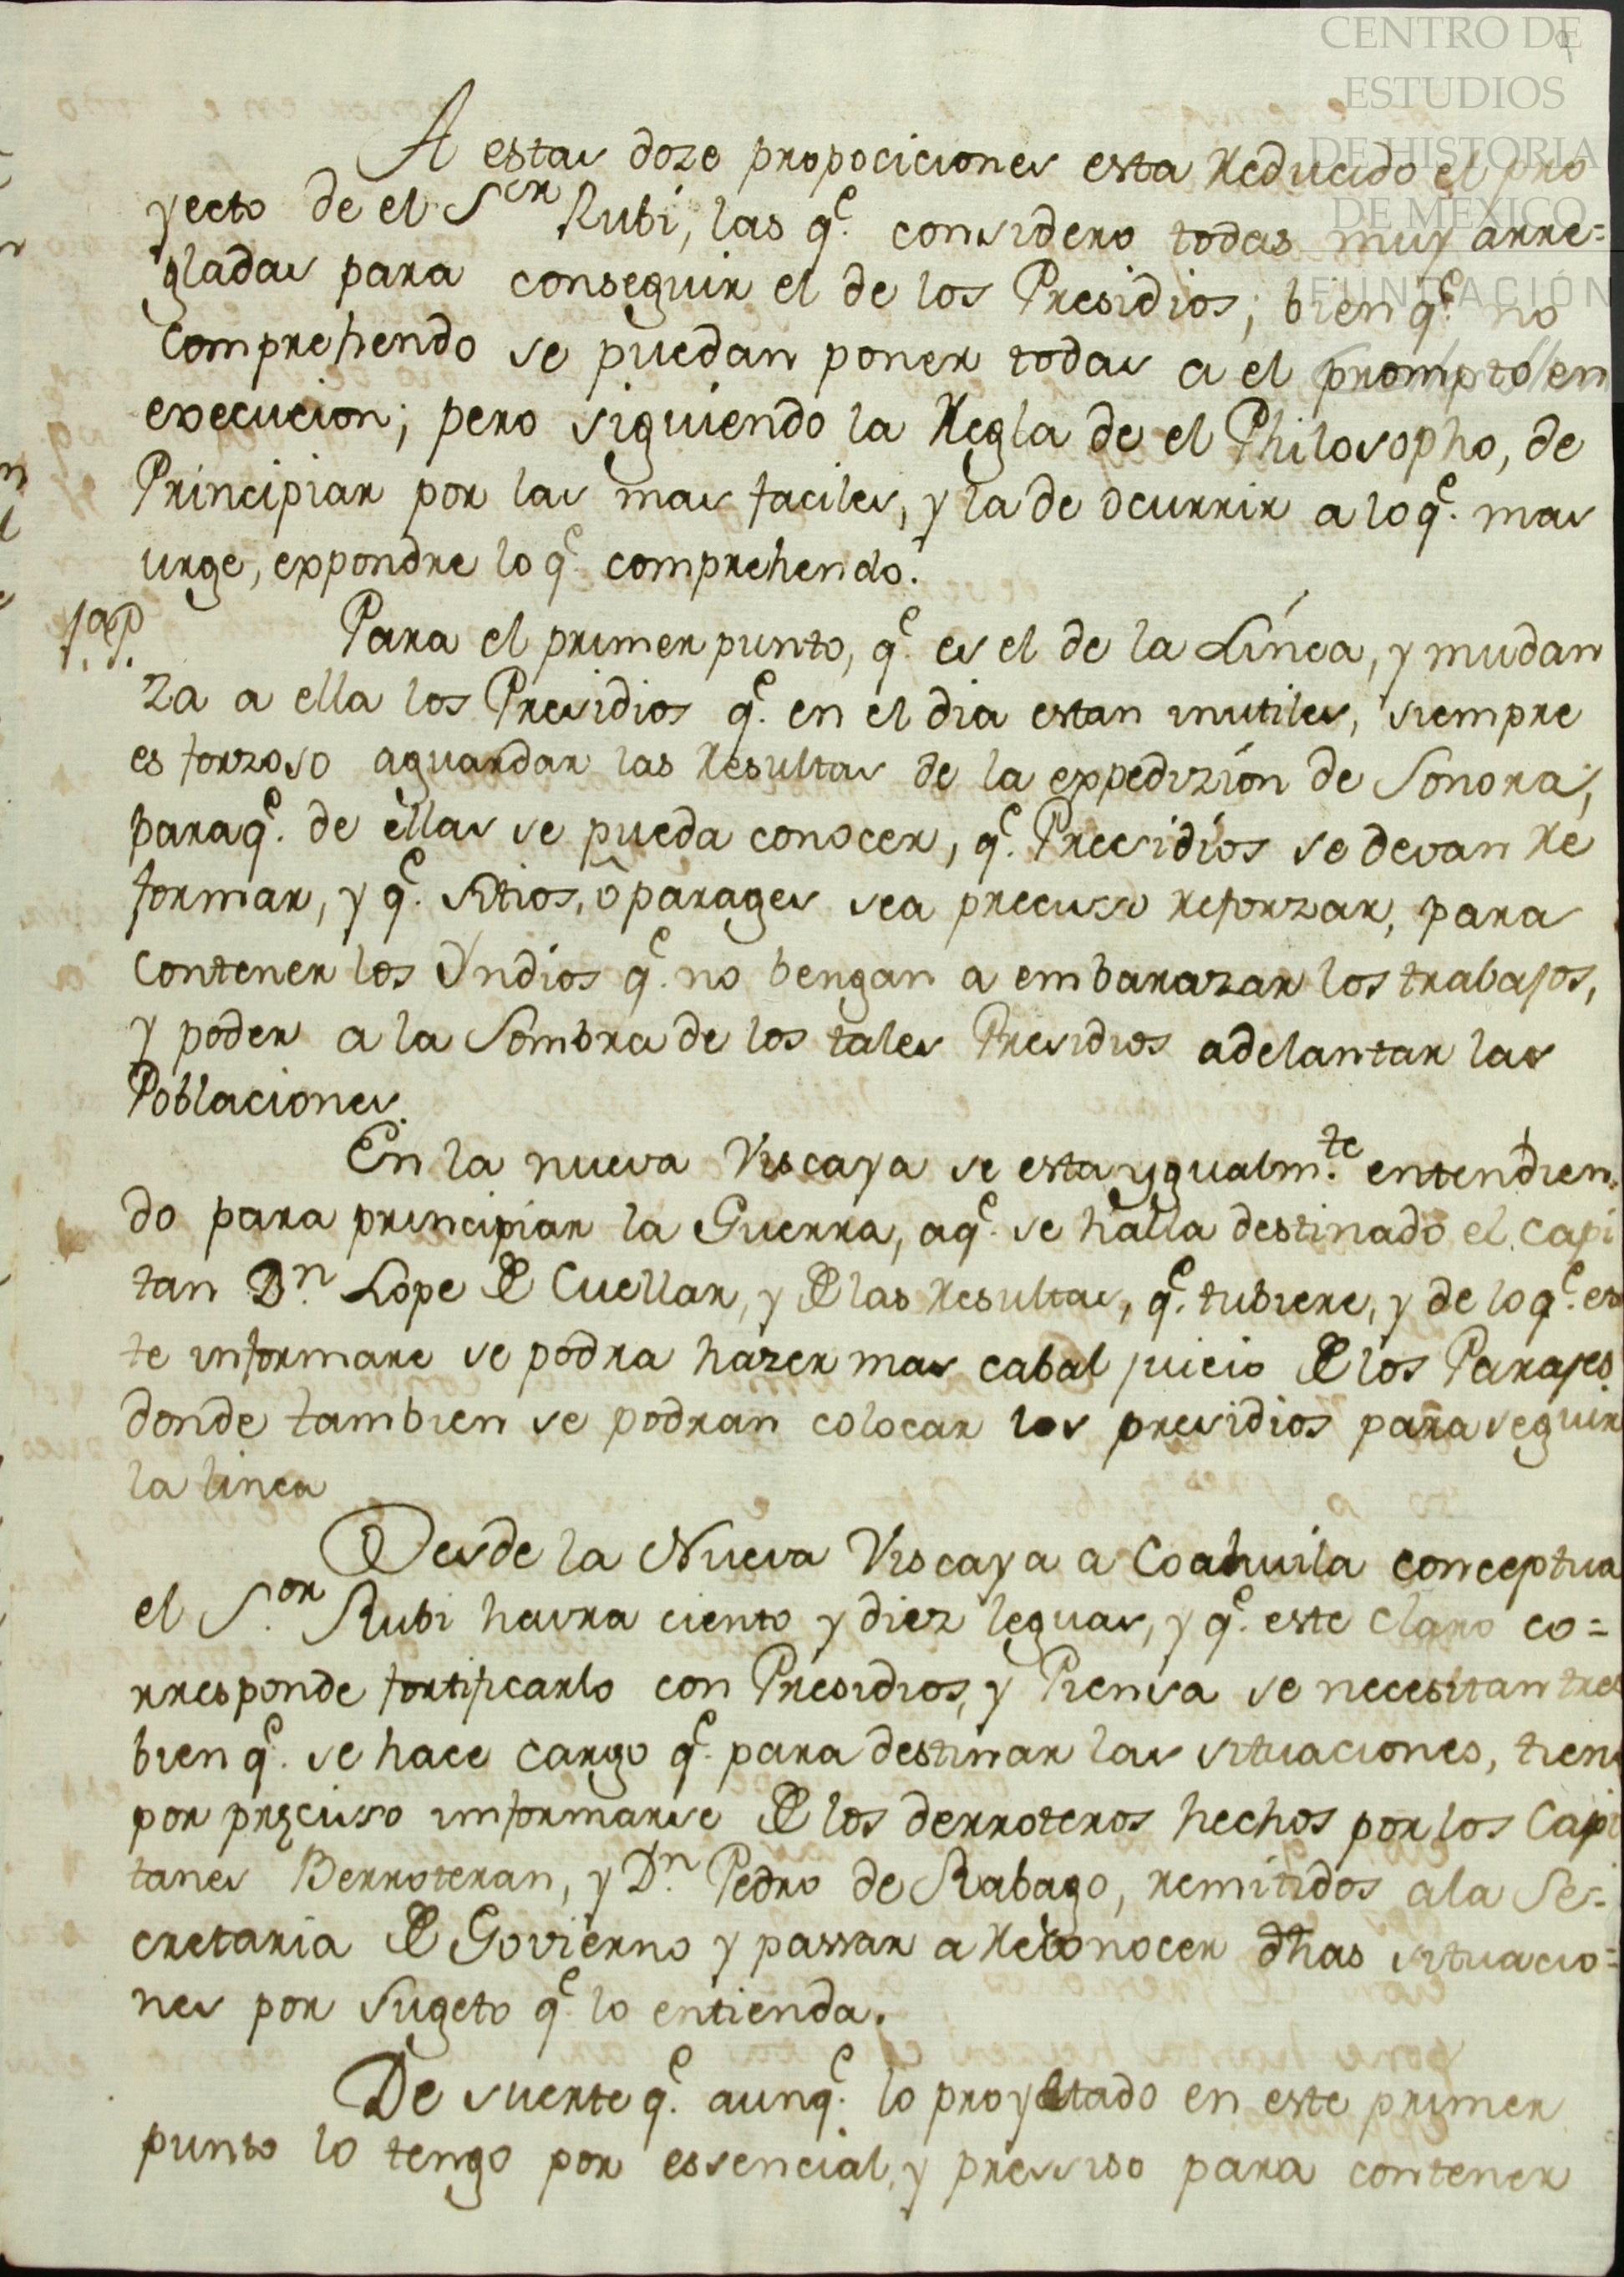 CENTRO DE
ESTUDIOS
DE HISTORIA
DE MEXICO
FUNDACIÓN
A estas doze propociciones esta Reducido el pro
yecto de el Sor Rubi, las qe. considero todas muy arre=
gladas para conseguir el de los Presidios; bien qe. no
comprehendo se puedan poner todas a el prompto en
execucion; pero siguiendo la Regla de el Philosopho, de
Principiar por las mas faciles, y la de ocurrir a lo qe. mas
urge, expondre lo qe. comprehendo.
1a. P.
Para el primer punto, qe. es el de la Línea, y mudan
za a ella los Presidios qe. en el dia estan inutiles, siempre
es forzoso aguardar las Resultas de la expedizión de Sonora,
para qe. de ellas se pueda conocer, qe. Precidios se devan Re
formar, y qe. sitios, ô parages sea precisso reforzar, para
contener los Yndios qe. no bengan a embarazar los trabajos,
y poder a la Sombra de los tales Presidios adelantar las
Poblaciones.
En la nueva Viscaya se esta ygualmte. entendien
do para principiar la Guerra, a qe. se halla destinado el Capi
tan Dn. Lope de Cuellar, y de las Resultas, qe. tubiere, y de lo qe. es
te informare se podra hazer mas cabal juicio de los Parajes
donde tambien se podran colocar los presidios para seguir
la linea
Desde la Nueva Viscaya a Coahuila conceptua
el Sor. Rubi havra ciento y diez leguas, y qe. este claro co=
rresponde fortificarlo con Presidios, y Piensa se necesitan tres
bien qe. se hace cargo qe. para destinar las situaciones, tien
por precisso informarse de los derroteros hechos por los Capi
tanes Berroteran, y Dn. Pedro de Rabago, remitidos a la Se=
cretaria de Govierno y passar a Reconocer dhas situacio=
nes por Sugeto qe. lo entienda.
De suerte qe. aunqe. lo proyectado en este primer
punto lo tengo por essencial, y pressiso para contener